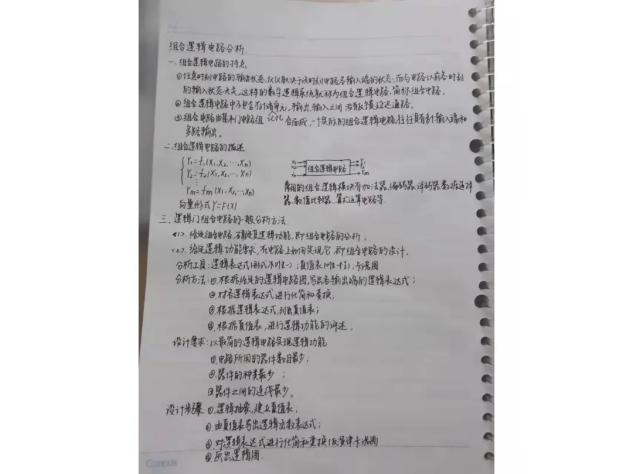 组合逻辑电路分析
一、组合逻辑电路的特点
①任意时刻电路的输出状态,仅仅取决于该时刻电路各输入端的状态,而与电路以前各时刻
的输入状态无关,这样的数字逻辑系统就称为组合逻辑电路,简称组合电路。
②组合逻辑电路中不包含存储单元,输出、输入之间没有反馈延迟通路。
③组合电路由基本门电路组 合而成,一个实际的组合逻辑电路,往往具有多个输入端和
多路输出。
二、组合逻辑电路的描述
Y₁=f₁(X₁,X₂,…,Xn)
Y₂=f₂(X₁,X₂,…,Xn)
⋮
Ym=fm(X₁,X₂,…,Xn)
向量形式Y=F(X)
组合逻辑电路
常用的组合逻辑模块有加法器、编码器、译码器、数据选择
器、数值比较器、算术运算电路等.
三、逻辑门组合电路的一般分析方法
<1>. 给定组合电路,确定其逻辑功能,即组合电路的分析.
<2>. 给定逻辑功能要求,在电路上如何实现它,即组合电路的设计.
分析工具:逻辑表达式(形式不唯一);真值表(唯一性);卡诺图
分析方法:①.根据给定的逻辑电路图,写出各输出端的逻辑表达式;
②.对各逻辑表达式进行化简和变换,
③.根据逻辑表达式,列出真值表;
④.根据真值表,进行逻辑功能的评述.
设计要求:以最简的逻辑电路实现逻辑功能
①.电路所用的器件数目最少;
②.器件的种类最少;
③器件之间的连线最少。
设计步骤:①.逻辑抽象,建立真值表,
②.由真值表写出逻辑函数表达式;
③.对逻辑表达式进行化简和变换 卡诺图
④画出逻辑图
Campus